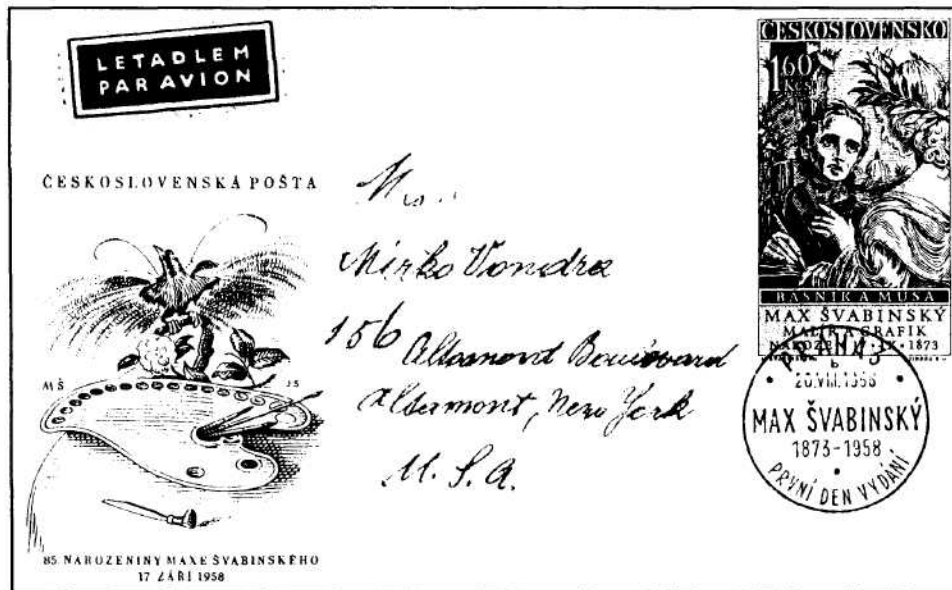 LETADLEM
PAR AVION
ČESKOSLOVENSKÁ POŠTA
MŠ
JS
85. NAROZENINY MAXE ŠVABINSKÉHO
17 ZÁŘÍ 1958
Mirko Vondra
156
Altamont Boulevard
Altamont, New York
U.S.A.
ČESKOSLOVENSKO
1.60
KČS
BÁSNÍK A MUSA
MAX ŠVABINSKÝ
MALÍŘ A GRAFIK
NAROZEN 17·IX·1873
PRAHA 3
20.VIII.1958
MAX ŠVABINSKÝ
1873-1958
PRVNÍ DEN VYDÁNÍ